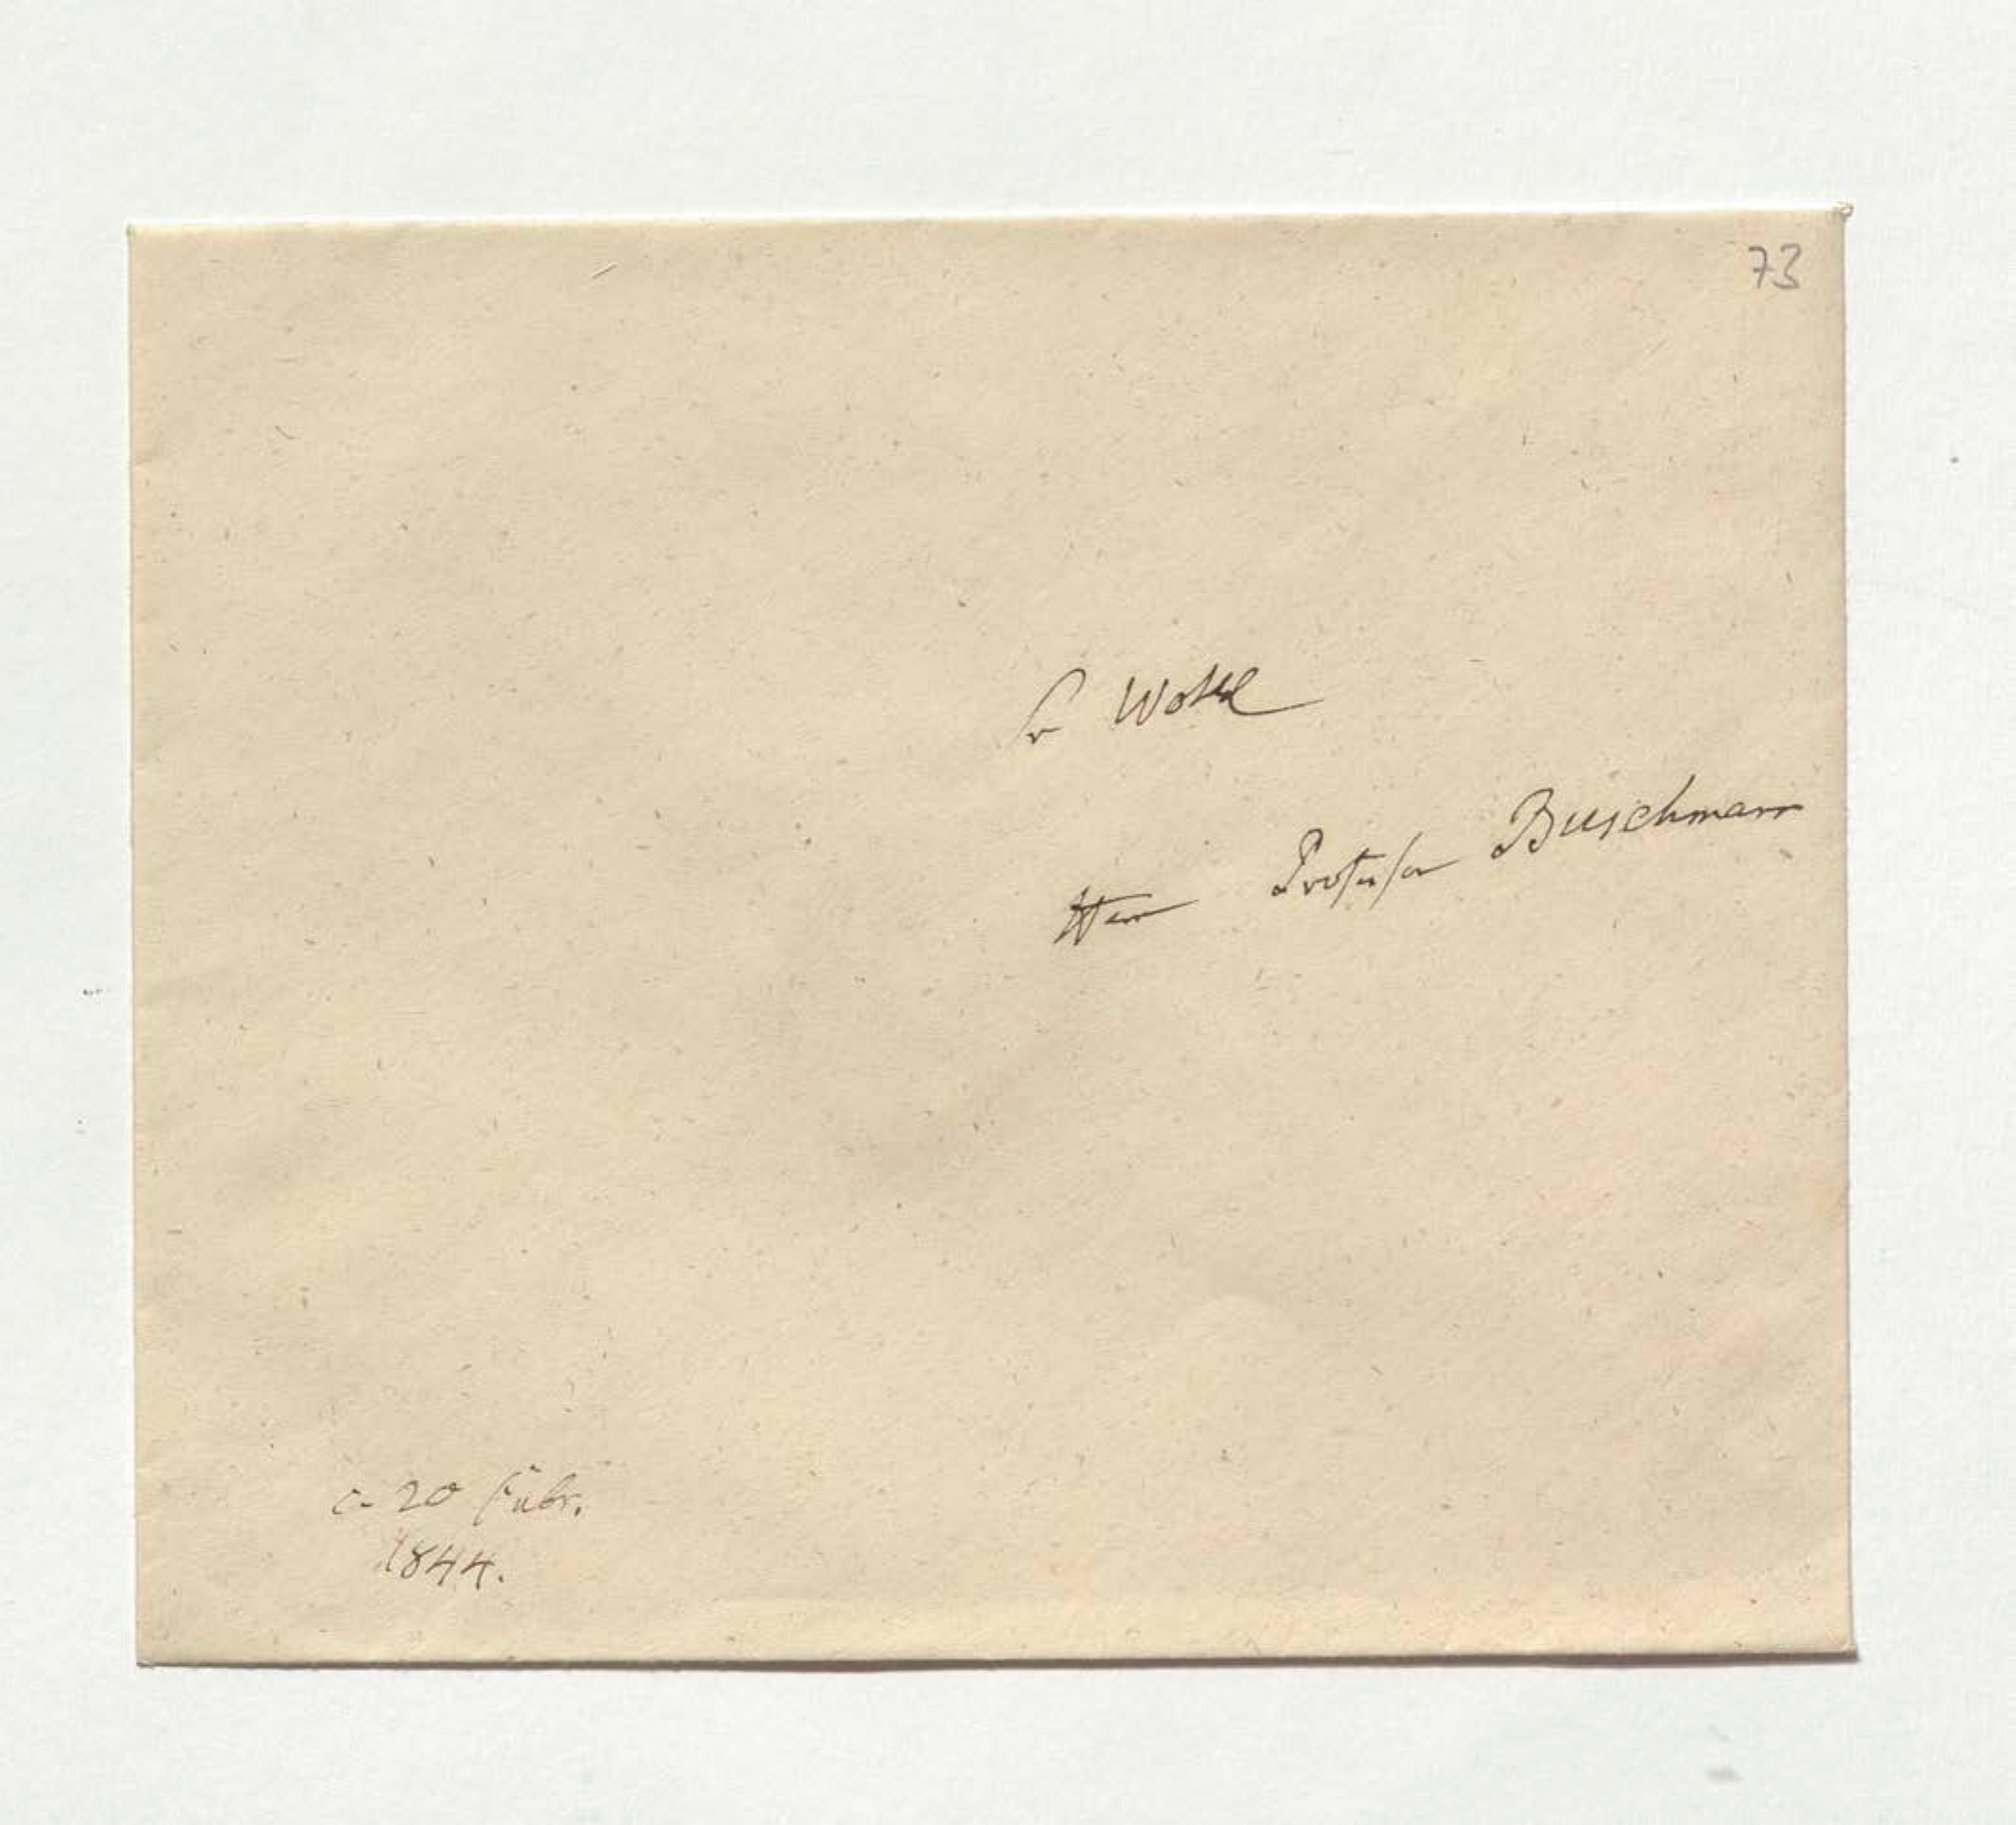 73
Sr Wohl
Herr Professor Buschmann
c. 20 Febr.
1844.